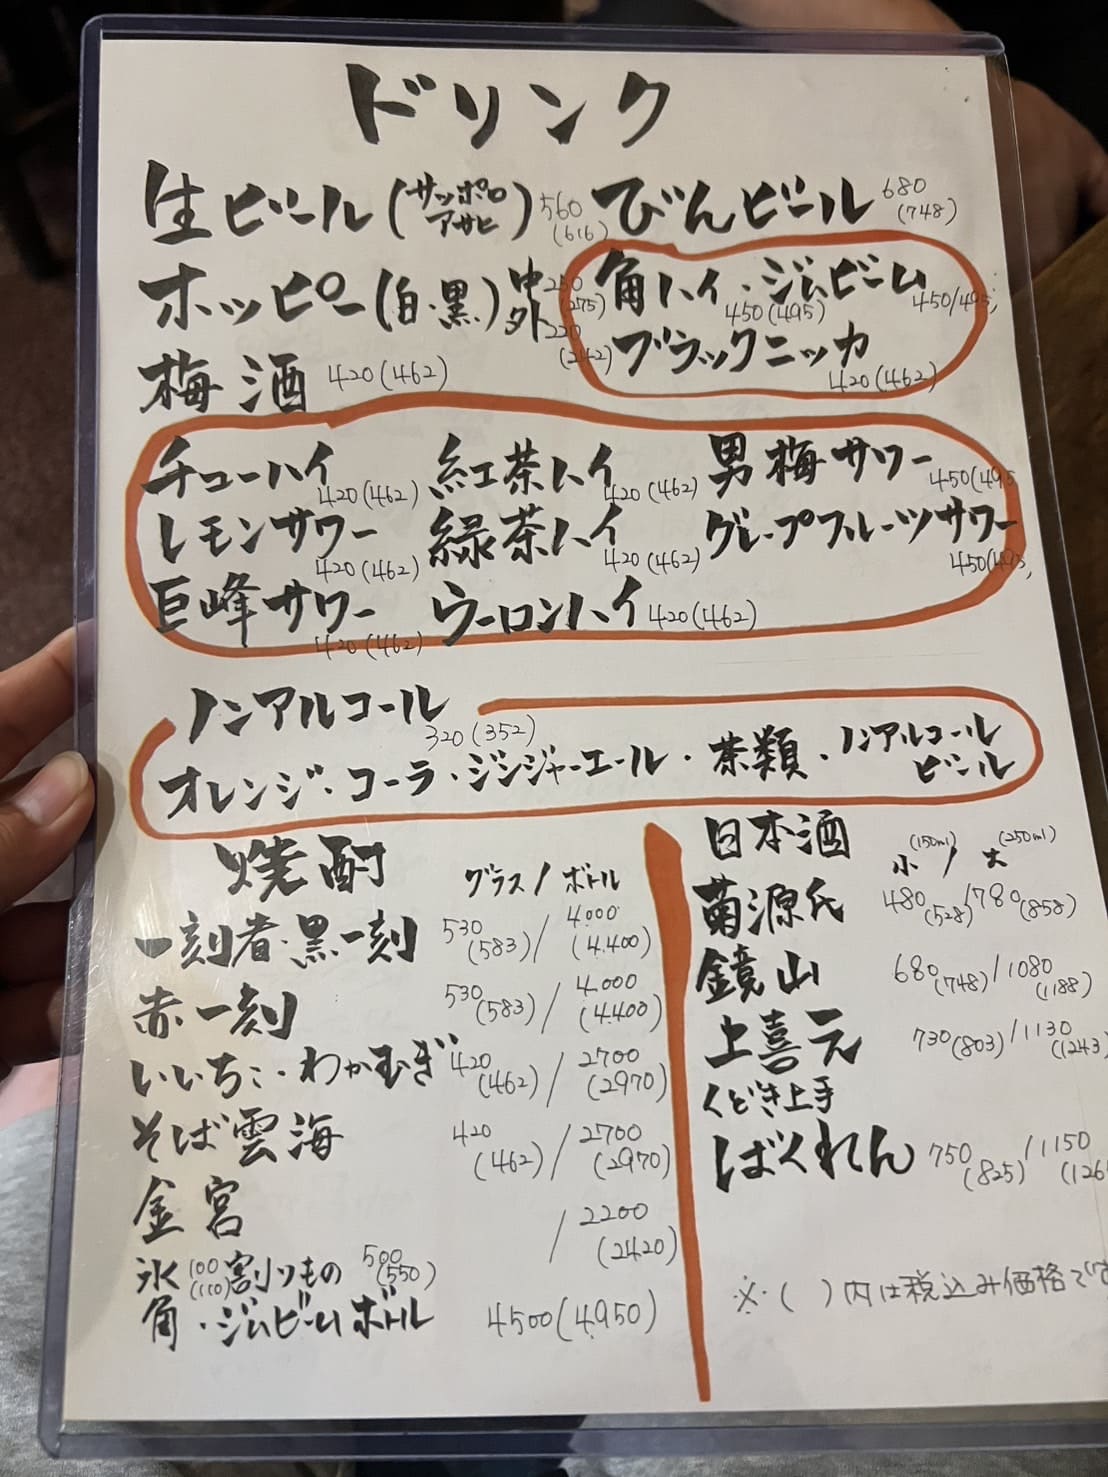 ドリンク
生ビール(サッポロ アサヒ) 560 (616) びんビール 680 (748)
ホッピー(白・黒) 中 250 (275) 外 220 (242)
角ハイ 450(495)・ジムビーム 450/495
ブラックニッカ 420(462)
梅酒 420(462)
チューハイ 420(462) 紅茶ハイ 420(462) 男梅サワー 450(495
レモンサワー 420(462) 緑茶ハイ 420(462) グレープフルーツサワー 450(495
巨峰サワー 420(462) ウーロンハイ 420(462)
ノンアルコール 320(352)
オレンジ・コーラ・ジンジャーエール・茶類・ノンアルコールビール
焼酎 グラス/ボトル
一刻者・黒一刻 530(583)/4.000(4.400)
赤一刻 530(583)/4.000(4.400)
いいちこ・わかむぎ 420(462)/2700(2970)
そば雲海 420(462)/2700(2970)
金宮 /2200(2420)
氷 100(110) 割りもの 500(550)
角・ジムビームボトル 4500(4.950)
日本酒 小(150ml)/大(250ml)
菊源氏 480(528)/780(858)
鏡山 680(748)/1080(1188)
上喜元 730(803)/1130(1243)
くどき上手
ばくれん 750(825)/1150(126
※( )内は税込み価格です